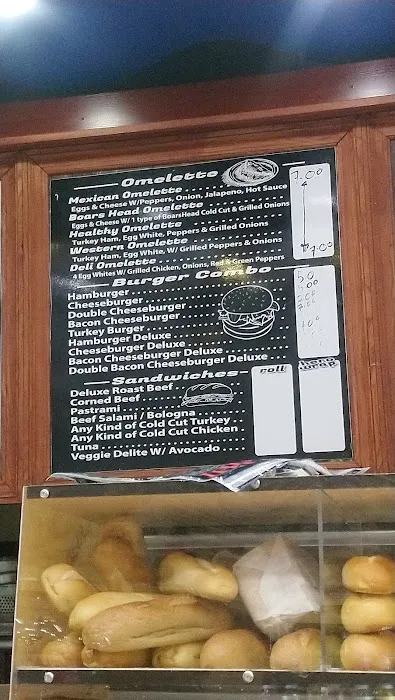 Omelette
Mexican Omelette
Eggs & Cheese W/Peppers, Onion, Jalapeno, Hot Sauce
Boars Head Omelette
Eggs & Cheese W/ 1 type of BoarsHead Cold Cut & Grilled Onions
Healthy Omelette
Turkey Ham, Egg White, Peppers & Grilled Onions
Western Omelette
Turkey Ham, Egg White, W/ Grilled Peppers & Onions
Deli Omelette
4 Egg Whites W/ Grilled Chicken, Onions, Red & Green Peppers
7.00
7.00
Burger Combo
Hamburger
Cheeseburger
Double Cheeseburger
Bacon Cheeseburger
Turkey Burger
Hamburger Deluxe
Cheeseburger Deluxe
Bacon Cheeseburger Deluxe
Double Bacon Cheeseburger Deluxe
Sandwiches
roll
hero
wrap
Deluxe Roast Beef
Corned Beef
Pastrami
Beef Salami / Bologna
Any Kind of Cold Cut Turkey
Any Kind of Cold Cut Chicken
Tuna
Veggie Delite W/ Avocado